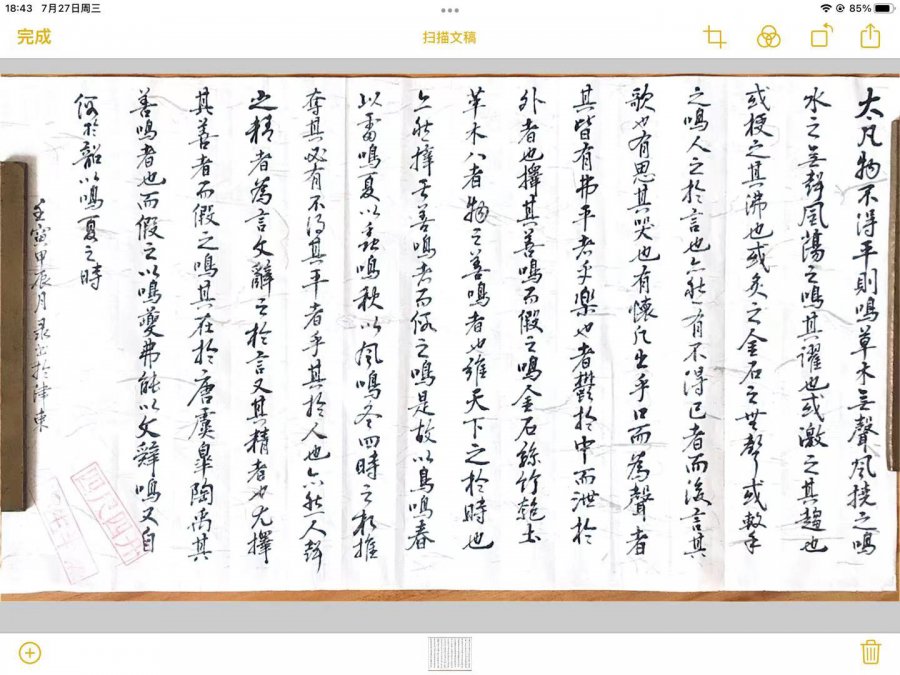 18:43 7月27日周三
85%
完成
扫描文稿
大凡物不得平則鳴草木无聲風撓之鳴
水之无聲風蕩之鳴其躍也或激之其趨也
或梗之其沸也或炙之金石之無聲或擊
之鳴人之於言也亦然有不得已者而後言其
歌也有思其哭也有懷凡出乎口而為聲者
其皆有弗平者乎樂也者鬱於中而泄於
外者也擇其善鳴而假之鳴金石絲竹匏土
革木八者物之善鳴者也維天下之於時也
亦然擇其善鳴者而假之鳴是故以鳥鳴春
以雷鳴夏以蟲鳴秋以風鳴冬四時之相推
奪其必有不得其平者乎其於人也亦然人聲
之精者為言文辭之於言又其精者也尤擇
其善者而假之鳴其在於唐虞皋陶禹其
善鳴者也而假之以鳴夔弗能以文辭鳴又自
假於韶以鳴夏之時
壬寅甲辰月录於津東